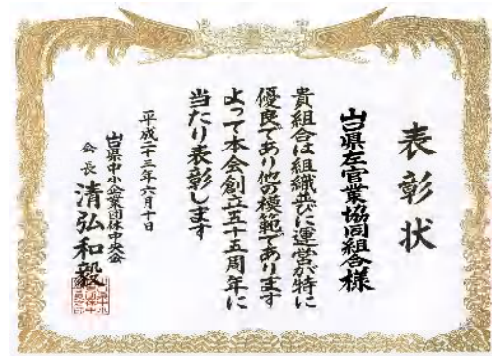 表彰状
山口県左官業協同組合様
貴組合は組織並びに運営が特に
優良であり他の模範であります
よって本会創立五十五周年に
当たり表彰します
平成二十三年六月十日
山口県中小企業団体中央会
会長 清弘和毅